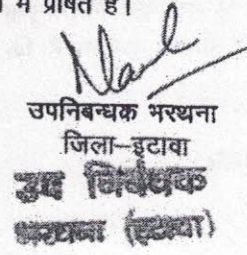 में प्रेषित है।
उपनिबन्धक भरथना
जिला–इटावा
उप निबंधक
भरथना (इटावा)